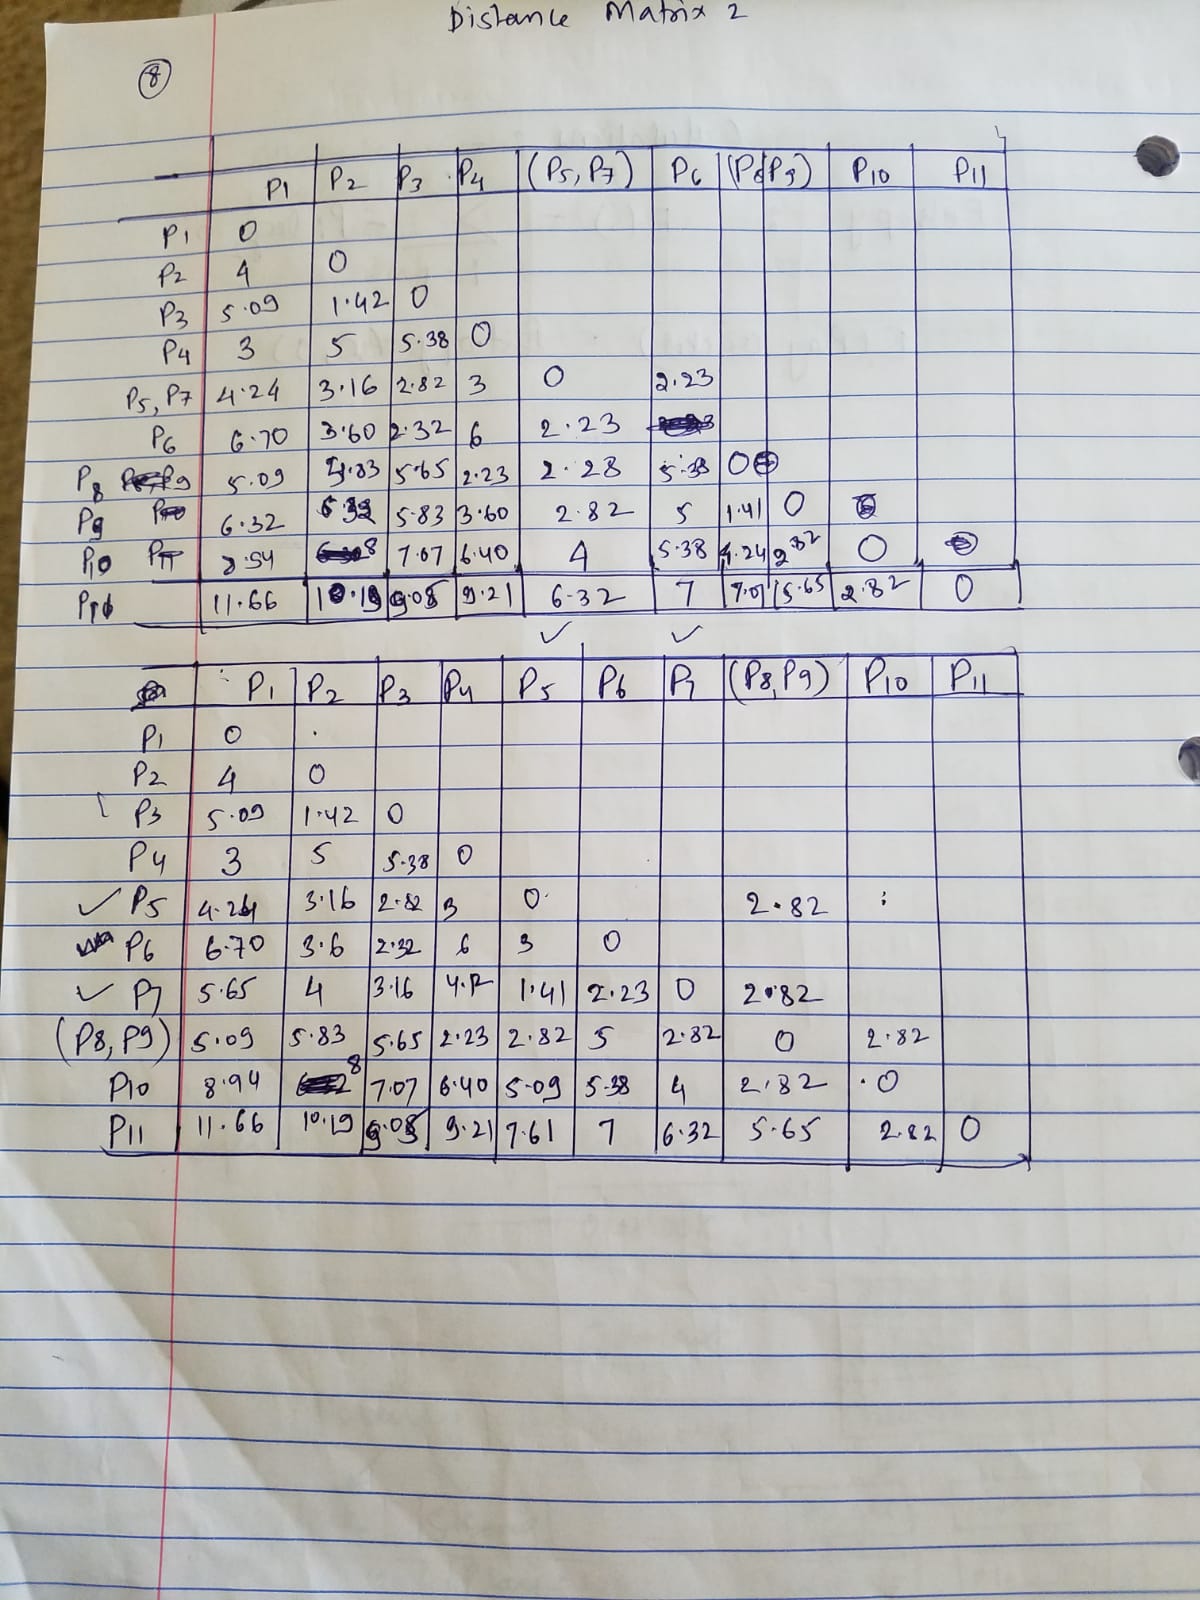 Distance Matrix 2
8
P1 P2 P3 P4 (P5, P7) P6 (P8 P9) P10 P11
P1 0
P2 4 0
P3 5.09 1.42 0
P4 3 5 5.38 0
P5, P7 4.24 3.16 2.82 3 0 2.23
P6 6.70 3.60 2.32 6 2.23
P8 5.09 5.65 2.23 2.28 5.38 0
P9 6.32 5.83 3.60 2.82 5 1.41 0
P10 8 7.07 6.40 4 5.38 4.24 0
11.66 10.19 9.05 9.21 6.32 7 7.07 5.65 2.82 0
P1 P2 P3 P4 P5 P6 P7 (P8, P9) P10 P11
P1 0
P2 4 0
P3 5.09 1.42 0
P4 3 5 5.38 0
P5 4.24 3.16 2.82 3 0 2.82
P6 6.70 3.6 2.32 6 3 0
P7 5.65 4 3.16 1.41 2.23 0 2.82
(P8, P9) 5.09 5.83 5.65 2.23 2.82 5 2.82 0 2.82
P10 8.94 8 7.07 6.40 5.09 5.38 4 2.82 0
P11 11.66 10.19 9.05 9.21 7.61 7 6.32 5.65 2.82 0